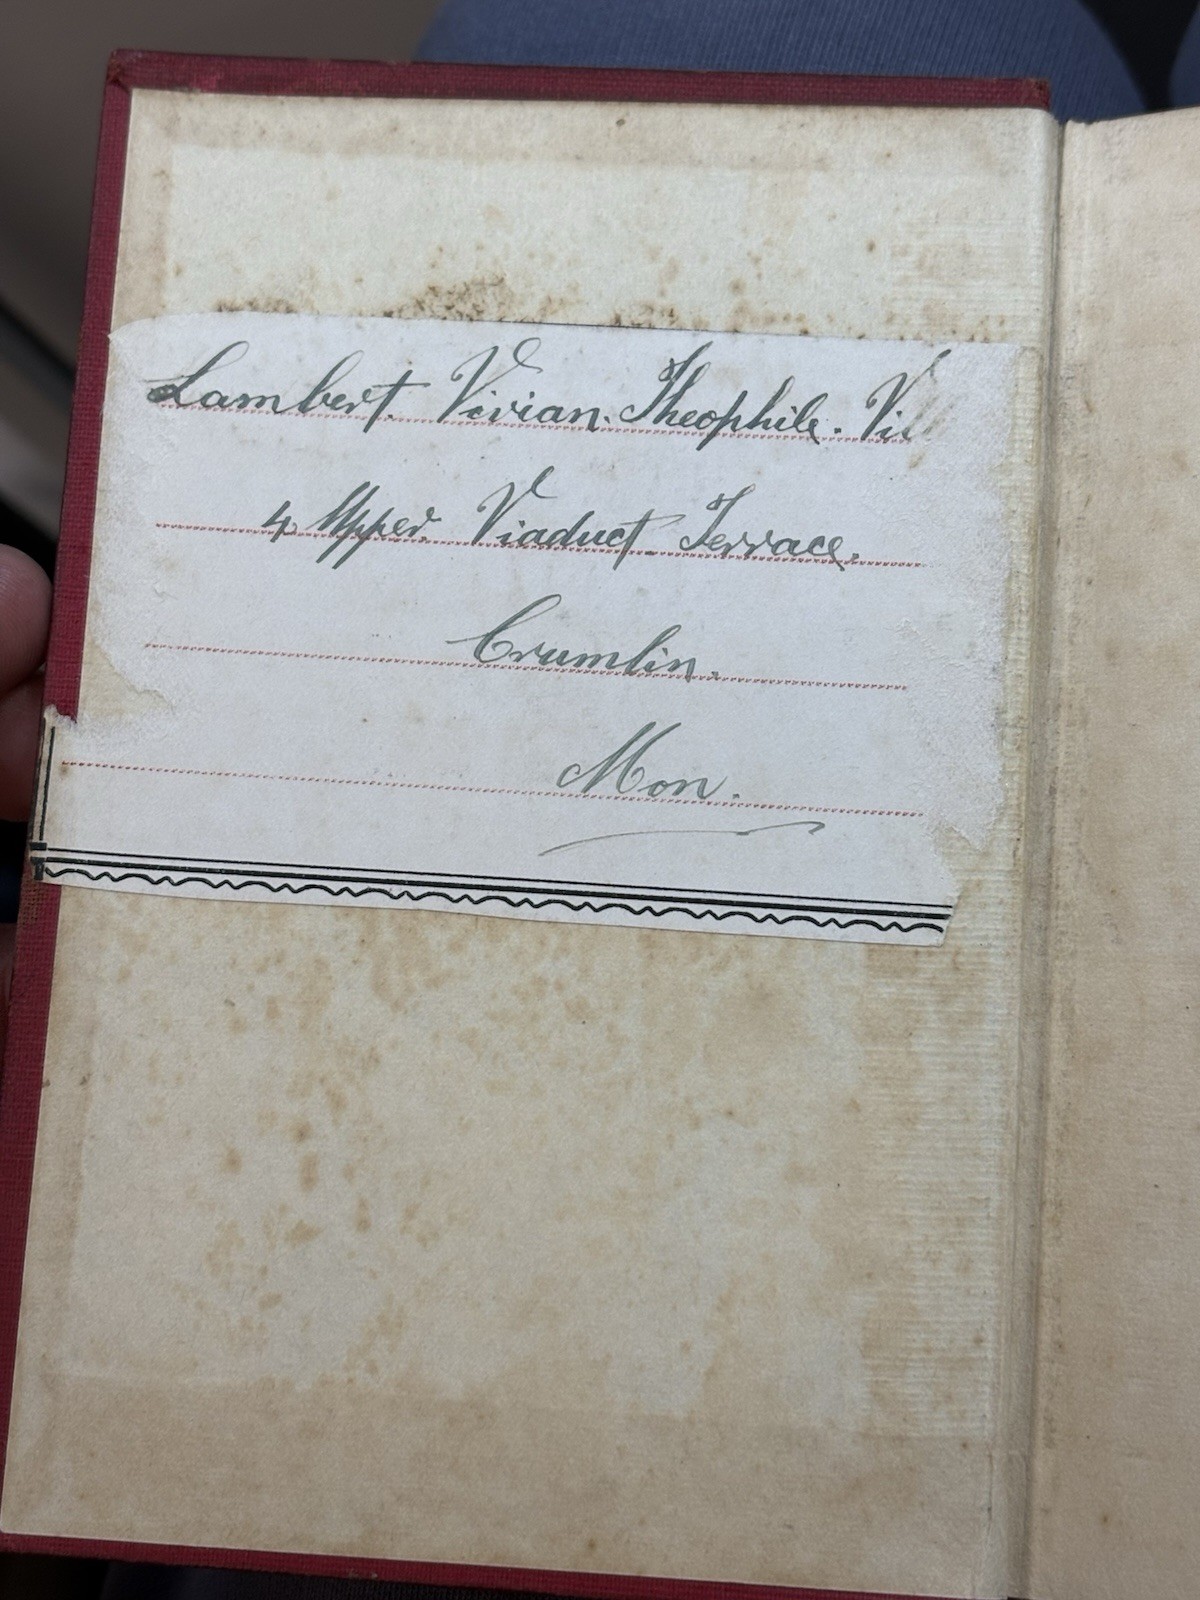 Lambert. Vivian. Theophile.
4 Upper. Viaduct Terrace.
Crumlin.
Mon.